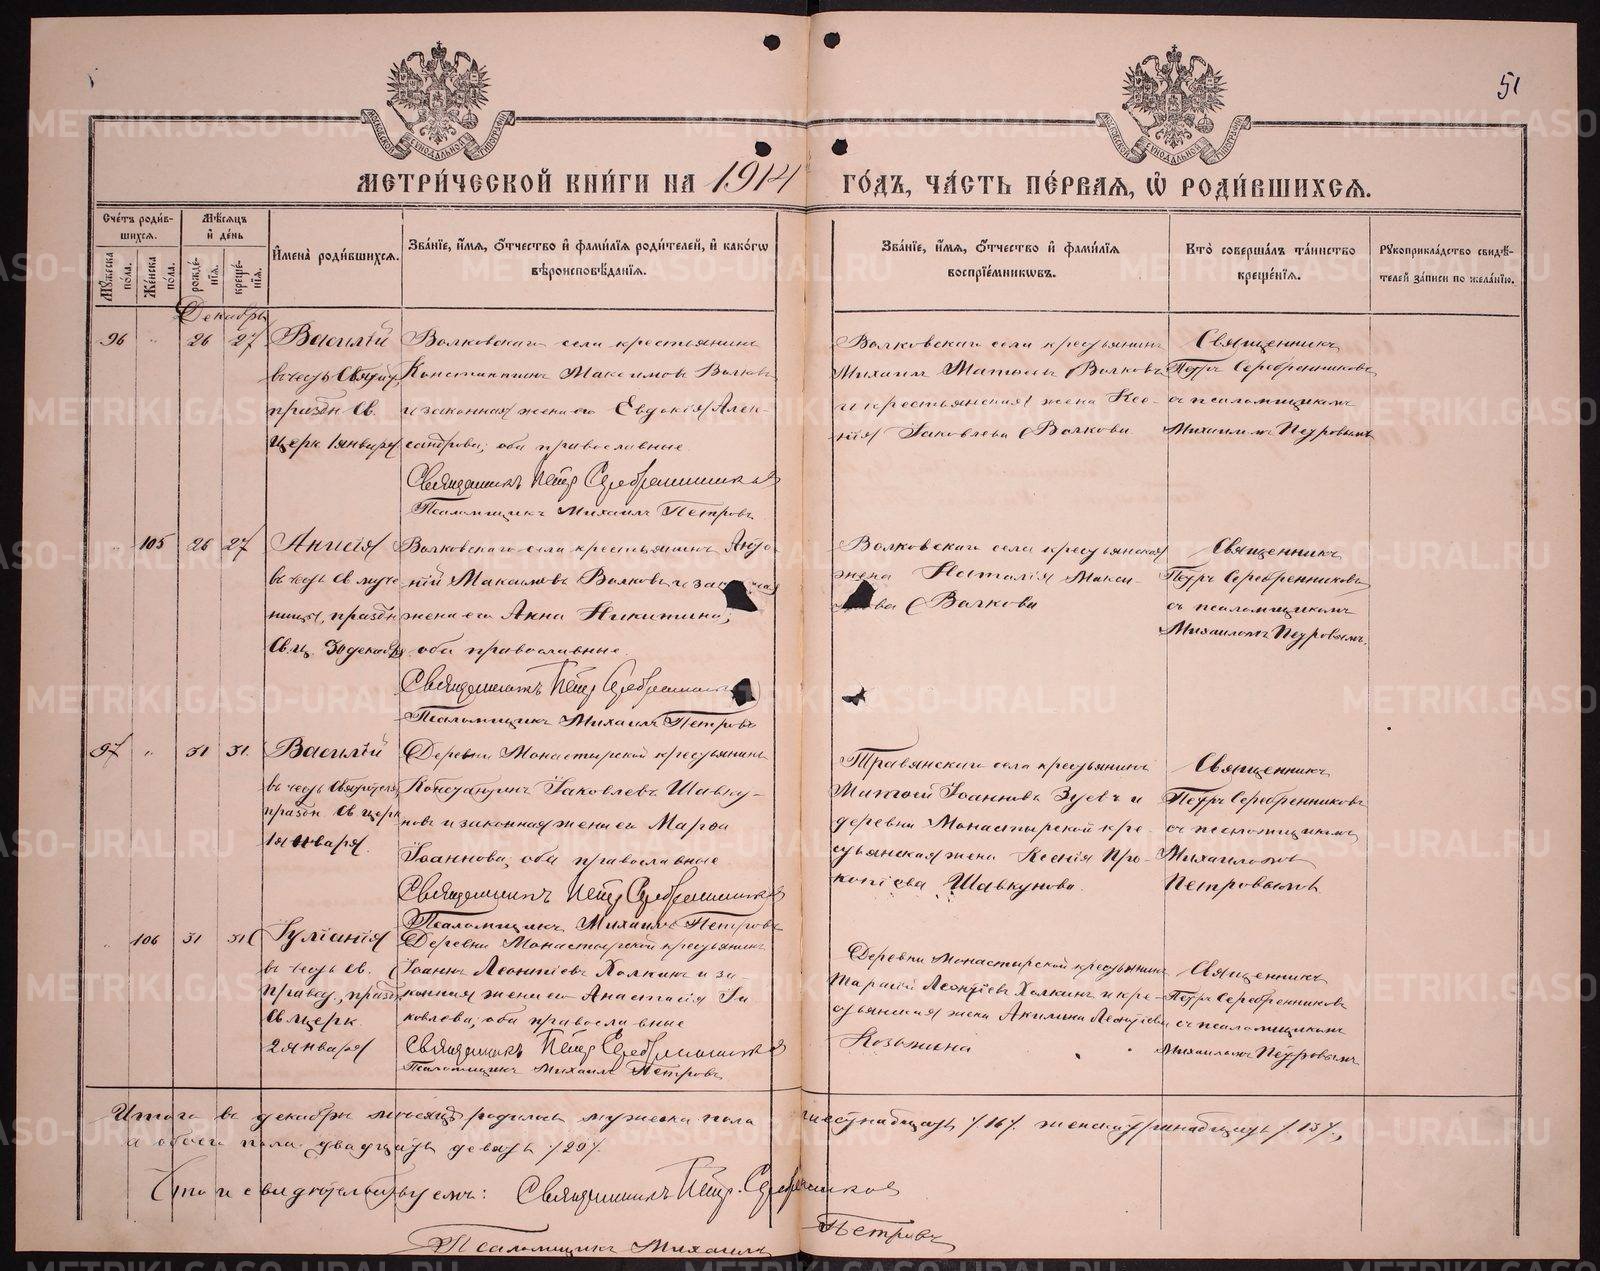 51
МЕТРИ́ЧЕСКОЙ КНИ́ГИ НА 1914 ГО́ДЪ, ЧА́СТЬ ПЕ́РВАЯ, Ѡ҆ РОДИ́ВШИХСЯ.
Сче́тъ роди́в-
шихся.
Мꙋ́жеска по́ла.
Же́нска по́ла.
Мѣ́сяцъ
и҆ де́нь
рожде́-
нїѧ.
креще́-
нїѧ.
И҆мена̀ роди́вшихся.
Зва́нїе, и҆́мя, ѻ҆́тчество и҆ фами́лїя роди́телей, и҆ како́гѡ
вѣроисповѣ́данїя.
Зва́нїе, и҆́мя, ѻ҆́тчество и҆ фами́лїя
воспрїе́мникѡвъ.
Кто̀ соверша́лъ та́инство
креще́нїя.
Рꙋкоприкла́дство свидѣ́-
телей за́писи по жела́нїю.
Декабрь
96 " 26 27
Василій
въ честь Святит.
праздн Св.
церк 1 января
Волковскаго села крестьянинъ
Константинъ Максимовъ Волковъ
и законная жена его Евдокія Алек-
сандрова; оба православные
Священникъ Петръ Серебренниковъ
Псаломщикъ Михаилъ Петровъ
Волковскаго села крестьянинъ
Михаилъ Волковъ
и крестьянская жена Ксе-
нія Іаковлева Волкова
Священникъ
Петръ Серебренниковъ
съ псаломщикомъ
Михаиломъ Петровымъ
" 105 26 27
Анисія
въ честь Св муче-
ницы, праздн
Св. ц. 30 декабря
Волковскаго села крестьянинъ Анто-
ній Максимовъ Волковъ и законная
жена его Анна Никитина;
оба православные.
Священникъ Петръ Серебренниковъ
Псаломщикъ Михаилъ Петровъ
Волковскаго села крестьянская
жена Наталія Макси-
мова Волкова
Священникъ
Петръ Серебренниковъ
съ псаломщикомъ
Михаиломъ Петровымъ.
97 " 31 31.
Василій
въ честь Святителя
праздн Св церк
1 января.
Деревни Монастырской крестьянинъ
Константинъ Іаковлевъ Шавку-
новъ и законная жена его Марѳа
Іоаннова; оба православные
Священникъ Петръ Серебренниковъ
Псаломщикъ Михаилъ Петровъ
Травянскаго села крестьянинъ
Іоанновъ Зуевъ и
деревни Монастырской кре-
стьянская жена Ксенія Про-
копіева Шавкунова.
Священникъ
Петръ Серебренниковъ
съ псаломщикомъ
Михаиломъ
Петровымъ
" 106 31 31
Іуліанія
въ честь Св.
правед., праздн
Св церк.
2 января
Деревни Монастырской крестьянинъ
Іоаннъ Леонтіевъ Холкинъ и за-
конная жена его Анастасія Іа
ковлева; оба православные
Священникъ Петръ Серебренниковъ
Псаломщикъ Михаилъ Петровъ
Деревни Монастырской крестьянинъ
Тарасій Леонтіевъ Холкинъ и кре-
стьянская жена Акилина Леонтіева
Козьмина
Священникъ
Петръ Серебренниковъ
съ псаломщикомъ
Михаиломъ Петровымъ
Итого въ декабрѣ мѣсяцѣ родилось мужеска пола шестнадцать /16/. женска тринадцать /13/.,
а обоего пола двадцать девять /29/.
Что и свидѣтельствуемъ: Священникъ Петръ Серебренниковъ
Псаломщикъ Михаилъ Петровъ
METRIKI.GASO-URAL.RU